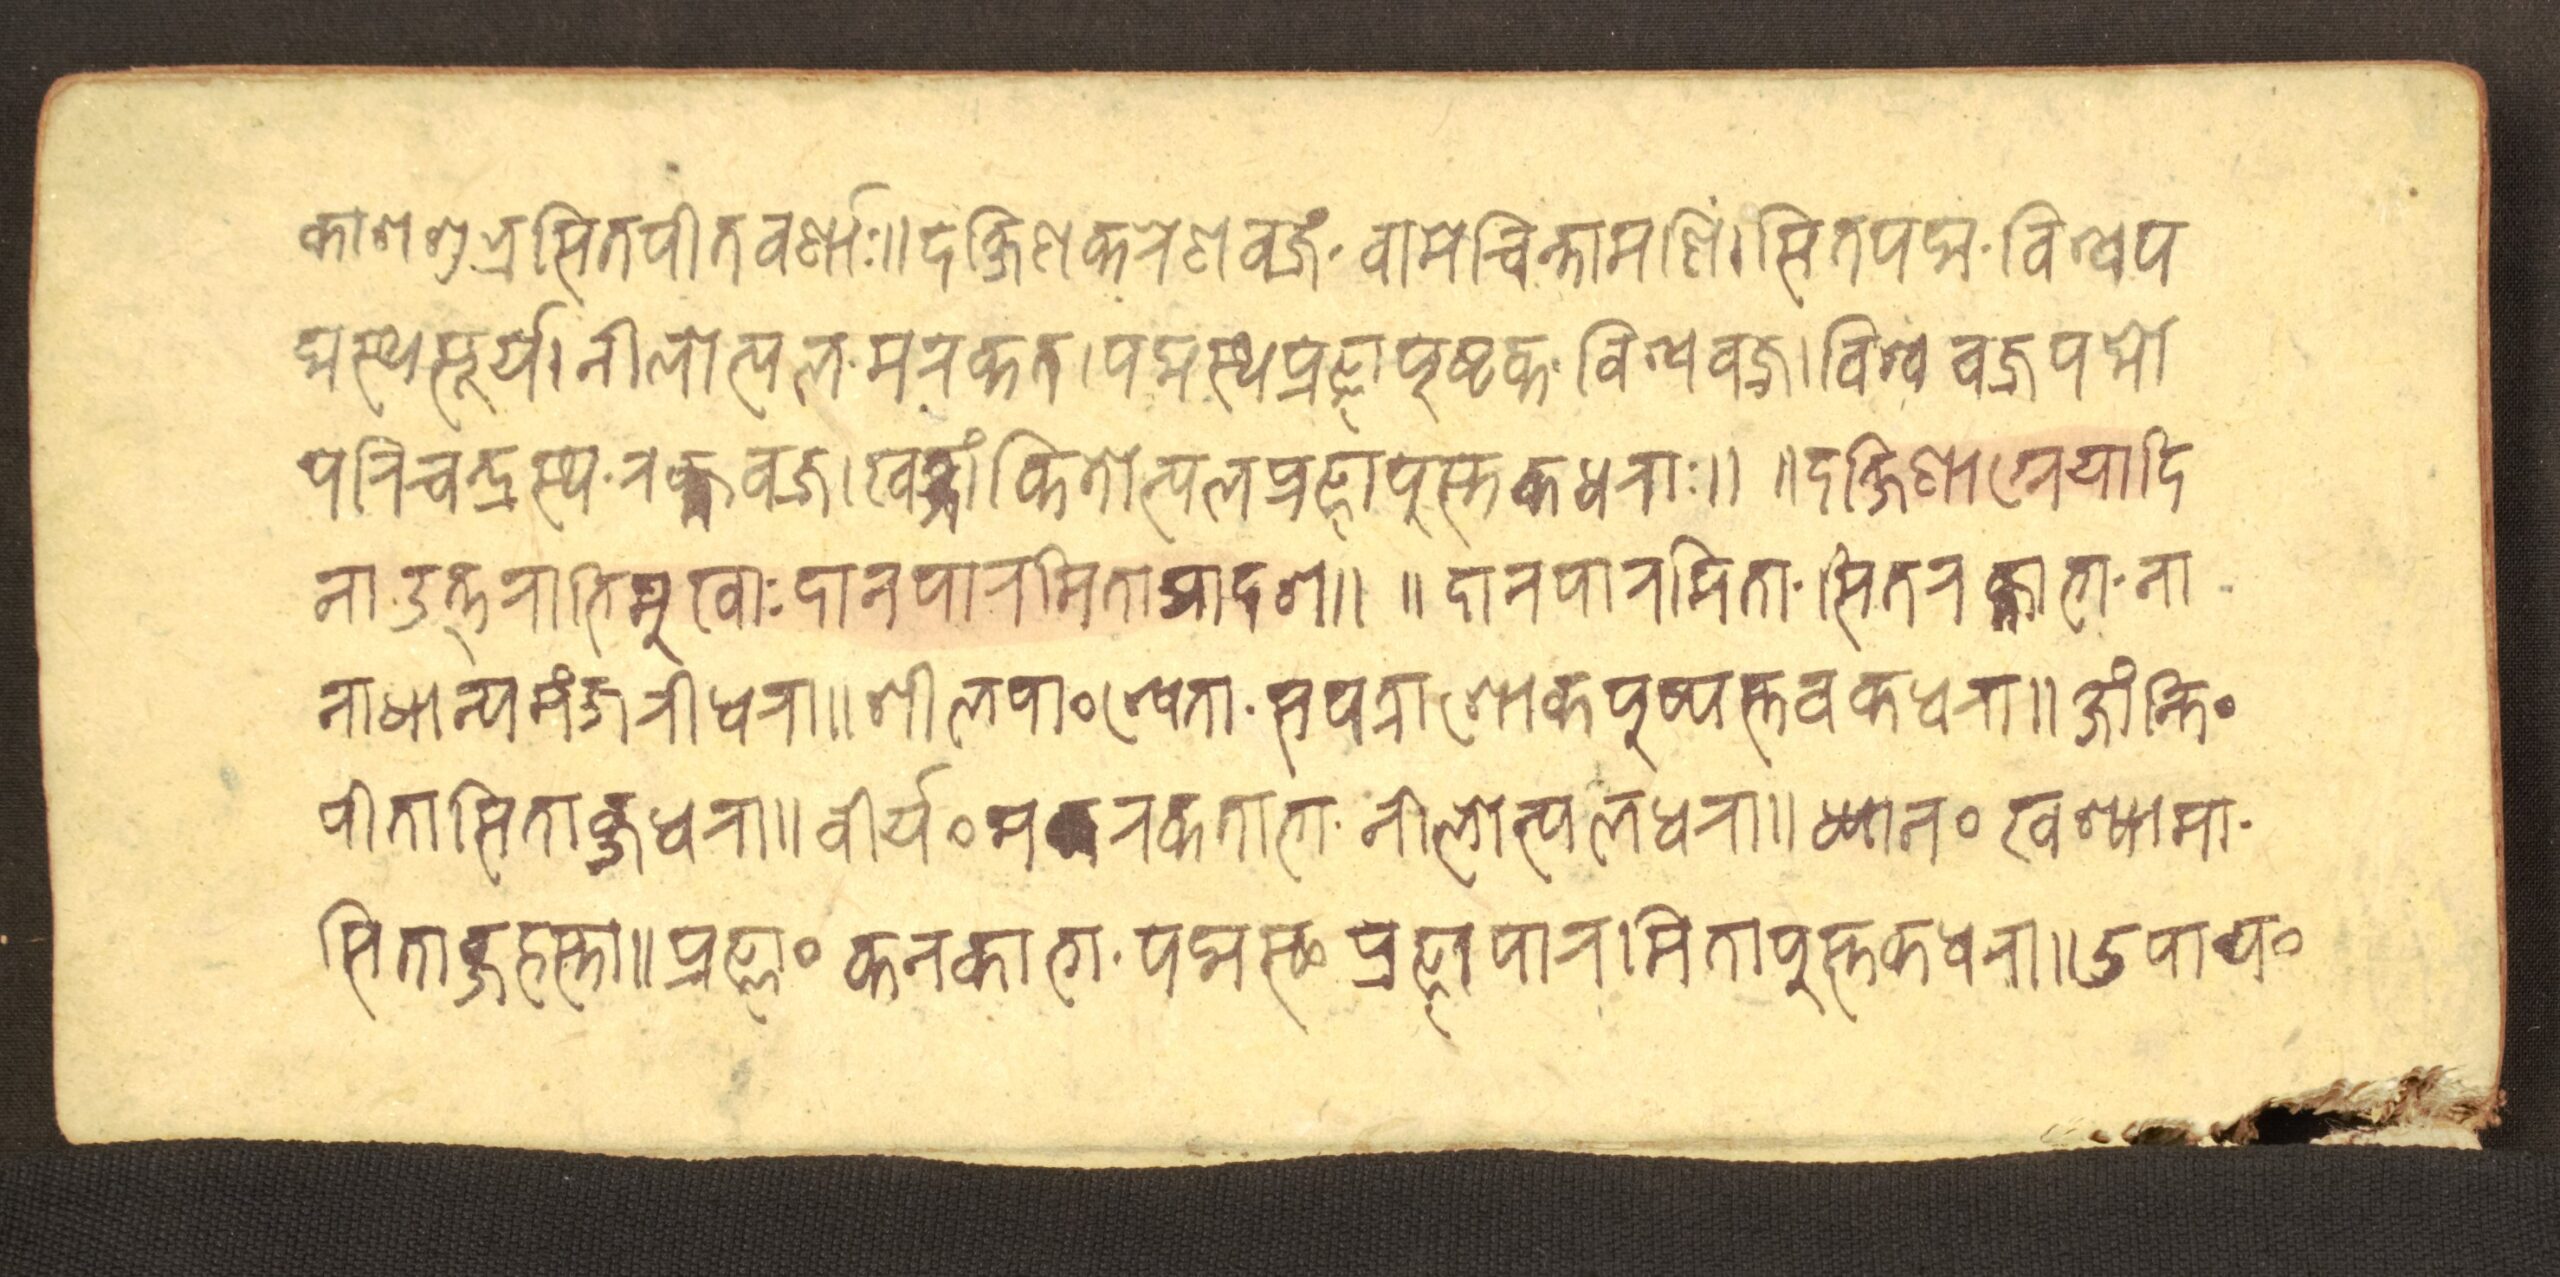 काशशुभ्रसितपीतवर्णाः॥दक्षिणकरेणवज्रं·वामेचिन्तामणिं।सितपद्म·विश्वप
द्मस्थसूर्य।नीलोत्पल·मरकत।पद्मस्थप्रज्ञापुष्टक·विश्ववज्र।विश्ववज्रपद्मो
परिचन्द्रस्थ·रक्तवज्र।खड्गांकितोत्पलप्रज्ञापुस्तकधराः॥ ॥दक्षिणाग्नेयादि
ना उत्तराभिमुखाः दानपारमिताद्वादश॥ ॥दानपारमिता·सितरक्ताभा·ना
नाधान्यमंजरीधरा॥शीलपा०श्वेता·सपत्राशोकपुष्पस्तवकधरा॥क्षांन्ति०
पीतासिताब्जधरा॥वीर्य०मरकताभा·नीलोत्पलधरा॥ध्यान०खश्यामा·
सिताब्जहस्ता॥प्रज्ञा०कनकाभा·पद्मस्थप्रज्ञापारमितापुस्तकधरा॥उपाय०